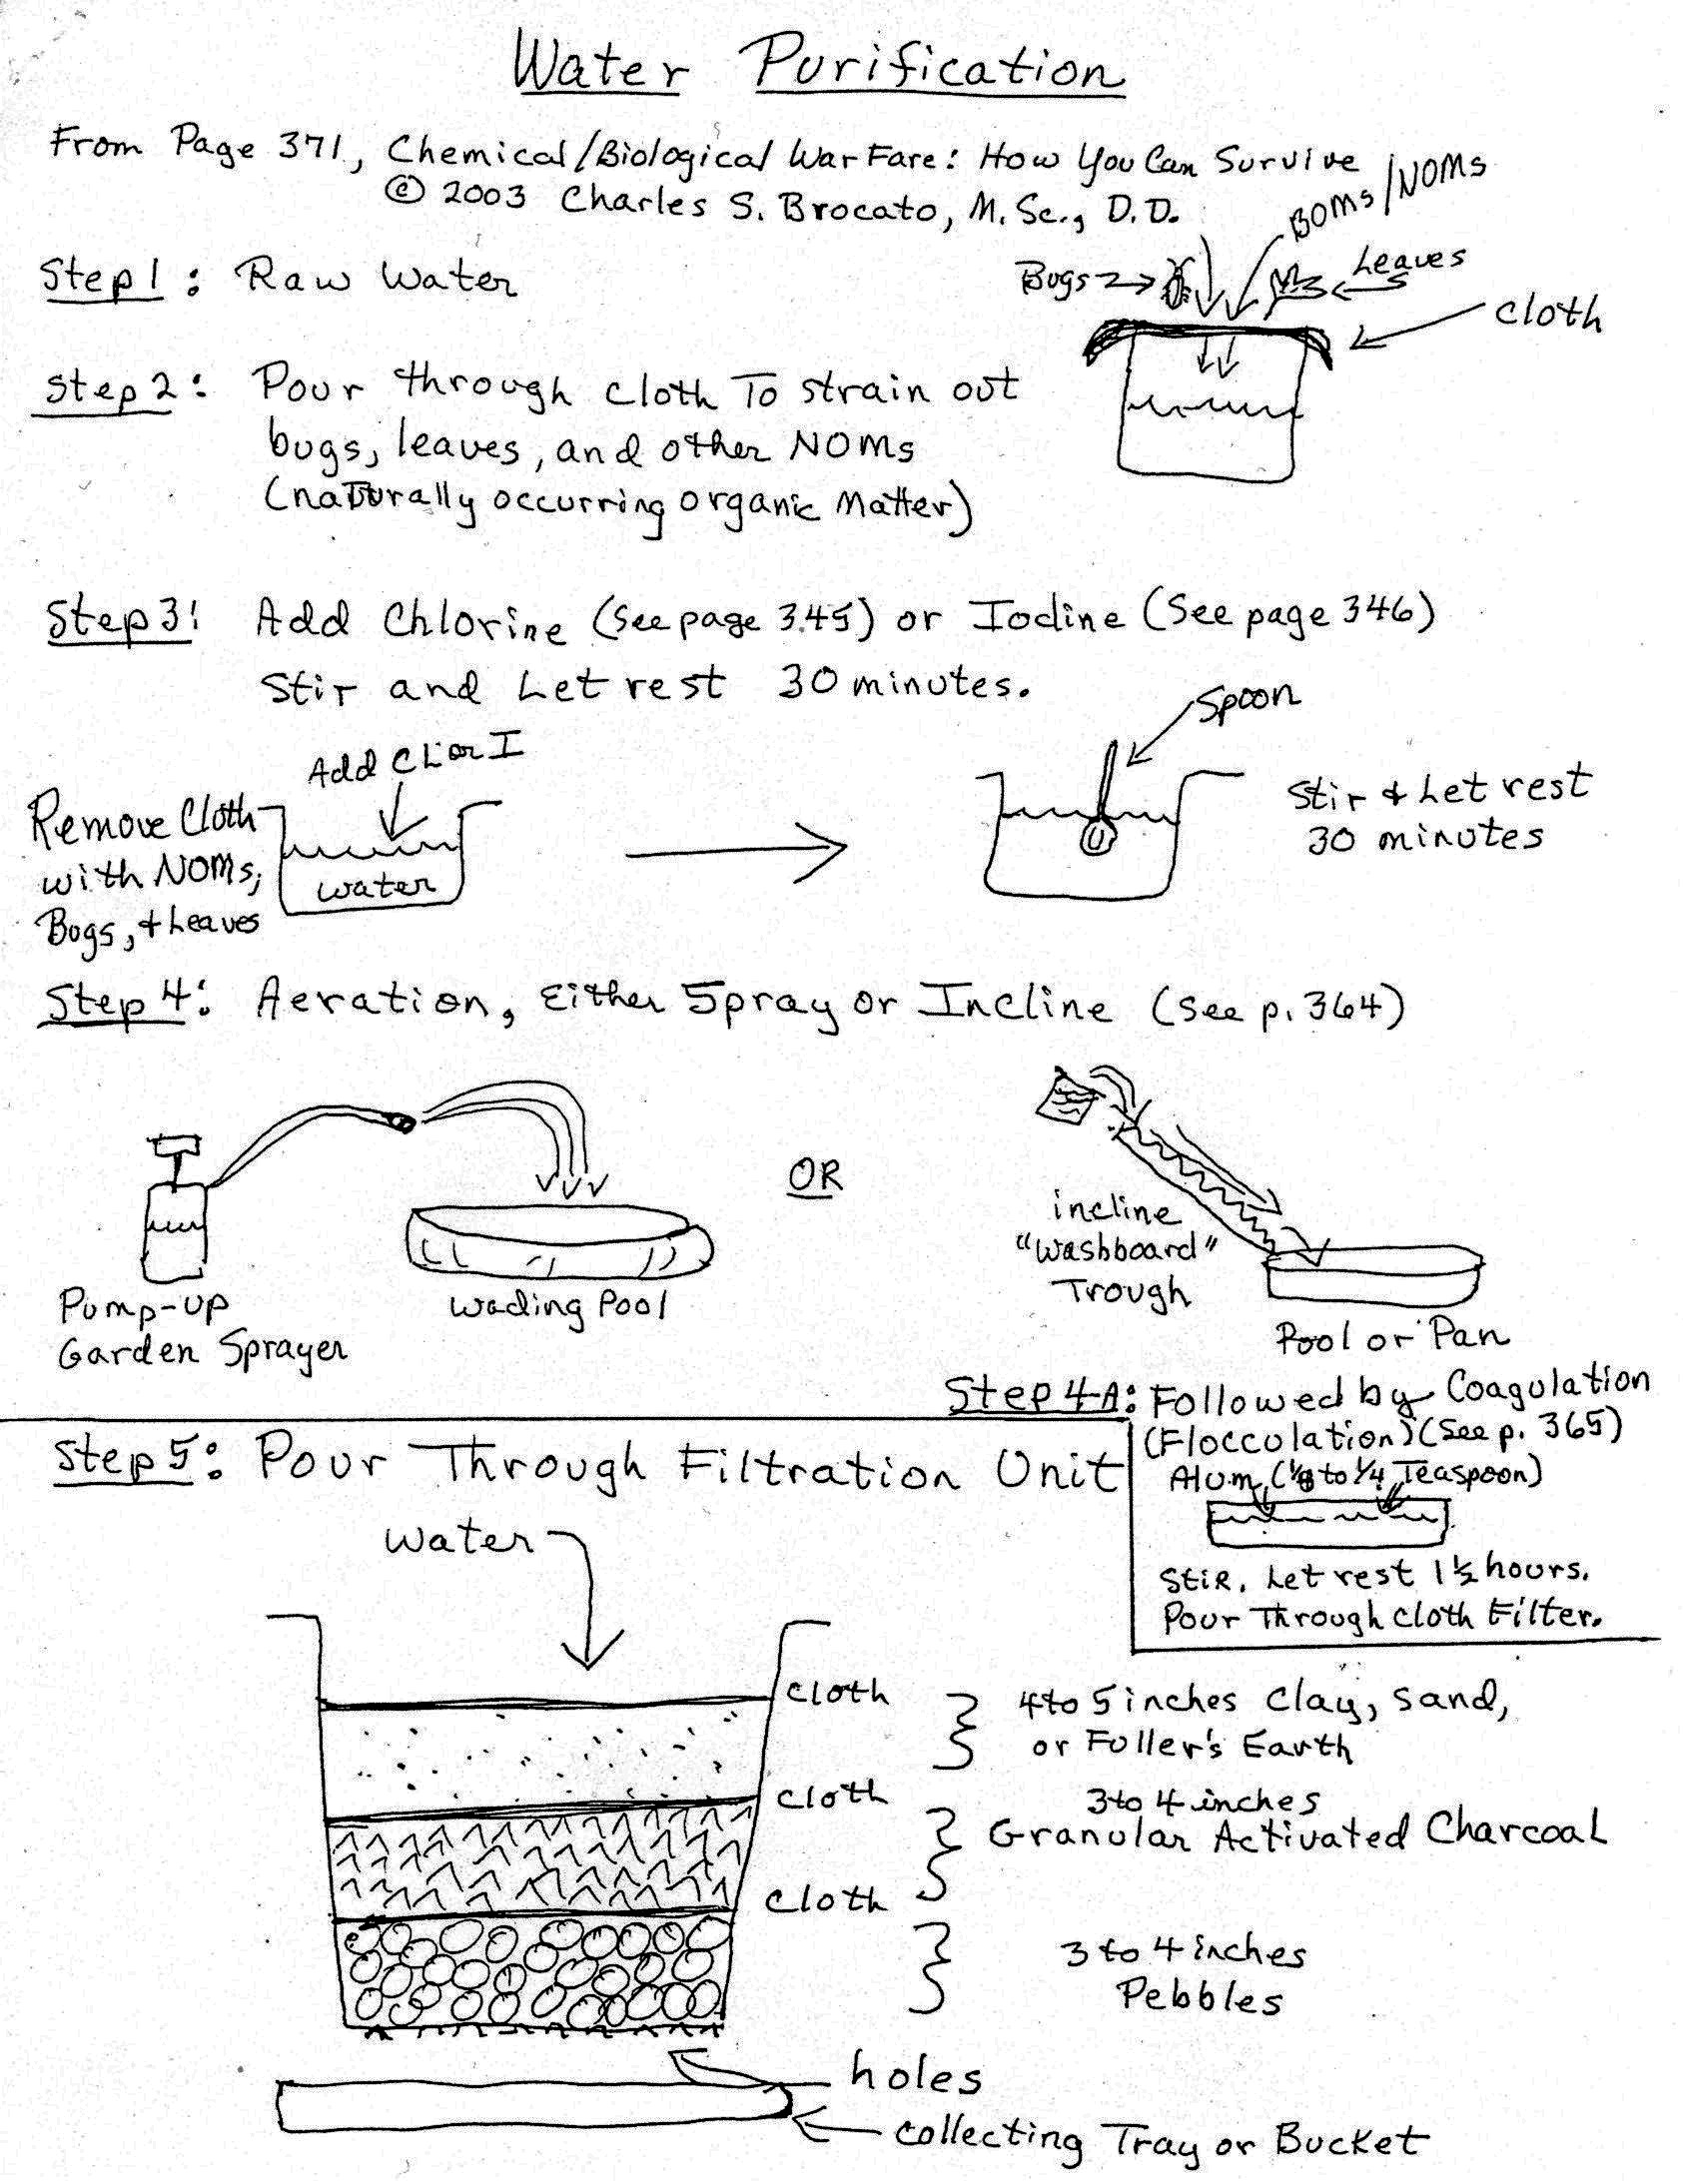 Water Purification
From Page 371, Chemical/Biological Warfare: How You Can Survive
© 2003 Charles S. Brocato, M.Sc., D.D.
BOMs/NOMs
Step 1: Raw Water
Bugs
Leaves
Cloth
Step 2: Pour through cloth To strain out
bugs, leaves, and other NOMs
(naturally occurring organic Matter)
Step 3: Add Chlorine (See page 345) or Iodine (See page 346)
Stir and Let rest 30 minutes.
Spoon
Add CL or I
Remove Cloth
with NOMs,
Bugs, + Leaves
water
Stir & Let rest
30 minutes
Step 4: Aeration, Either Spray or Incline (See p. 364)
OR
Pump-up
Garden Sprayer
Wading Pool
incline
"Washboard"
Trough
Pool or Pan
Step 4A: Followed by Coagulation
(Flocculation) (See p. 365)
Alum (1/8 to 1/4 Teaspoon)
Stir. Let rest 1 1/2 hours.
Pour Through Cloth Filter.
Step 5: Pour Through Filtration Unit
Water
Cloth
4 to 5 inches Clay, Sand,
or Fuller's Earth
Cloth
3 to 4 inches
Granular Activated Charcoal
Cloth
3 to 4 inches
Pebbles
holes
Collecting Tray or Bucket